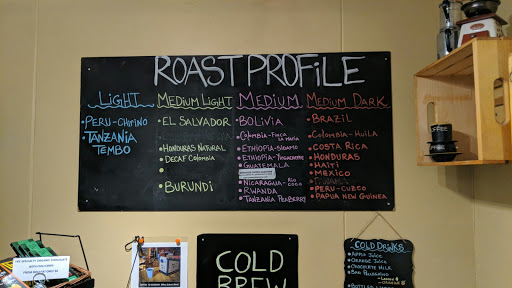 ROAST PROFILE
LIGHT
PERU-CHIRINO
TANZANIA
TEMBO
MEDIUM LIGHT
EL SALVADOR
HONDURAS NATURAL
DECAF COLOMBIA
BURUNDI
MEDIUM
BOLIVIA
COLOMBIA-FINCA
LA MARIA
ETHIOPIA-SIDAMO
ETHIOPIA-YIRGACHEFFE
GUATEMALA
NICARAGUA-RIO
COCO
RWANDA
TANZANIA PEABERRY
MEDIUM DARK
BRAZIL
COLOMBIA-HUILA
COSTA RICA
HONDURAS
HAITI
MEXICO
PERU-CUZCO
PAPUA NEW GUINEA
COLD
BREW
COLD DRINKS
APPLE JUICE
ORANGE JUICE
CHOCOLATE MILK
SAN PELLEGRINO